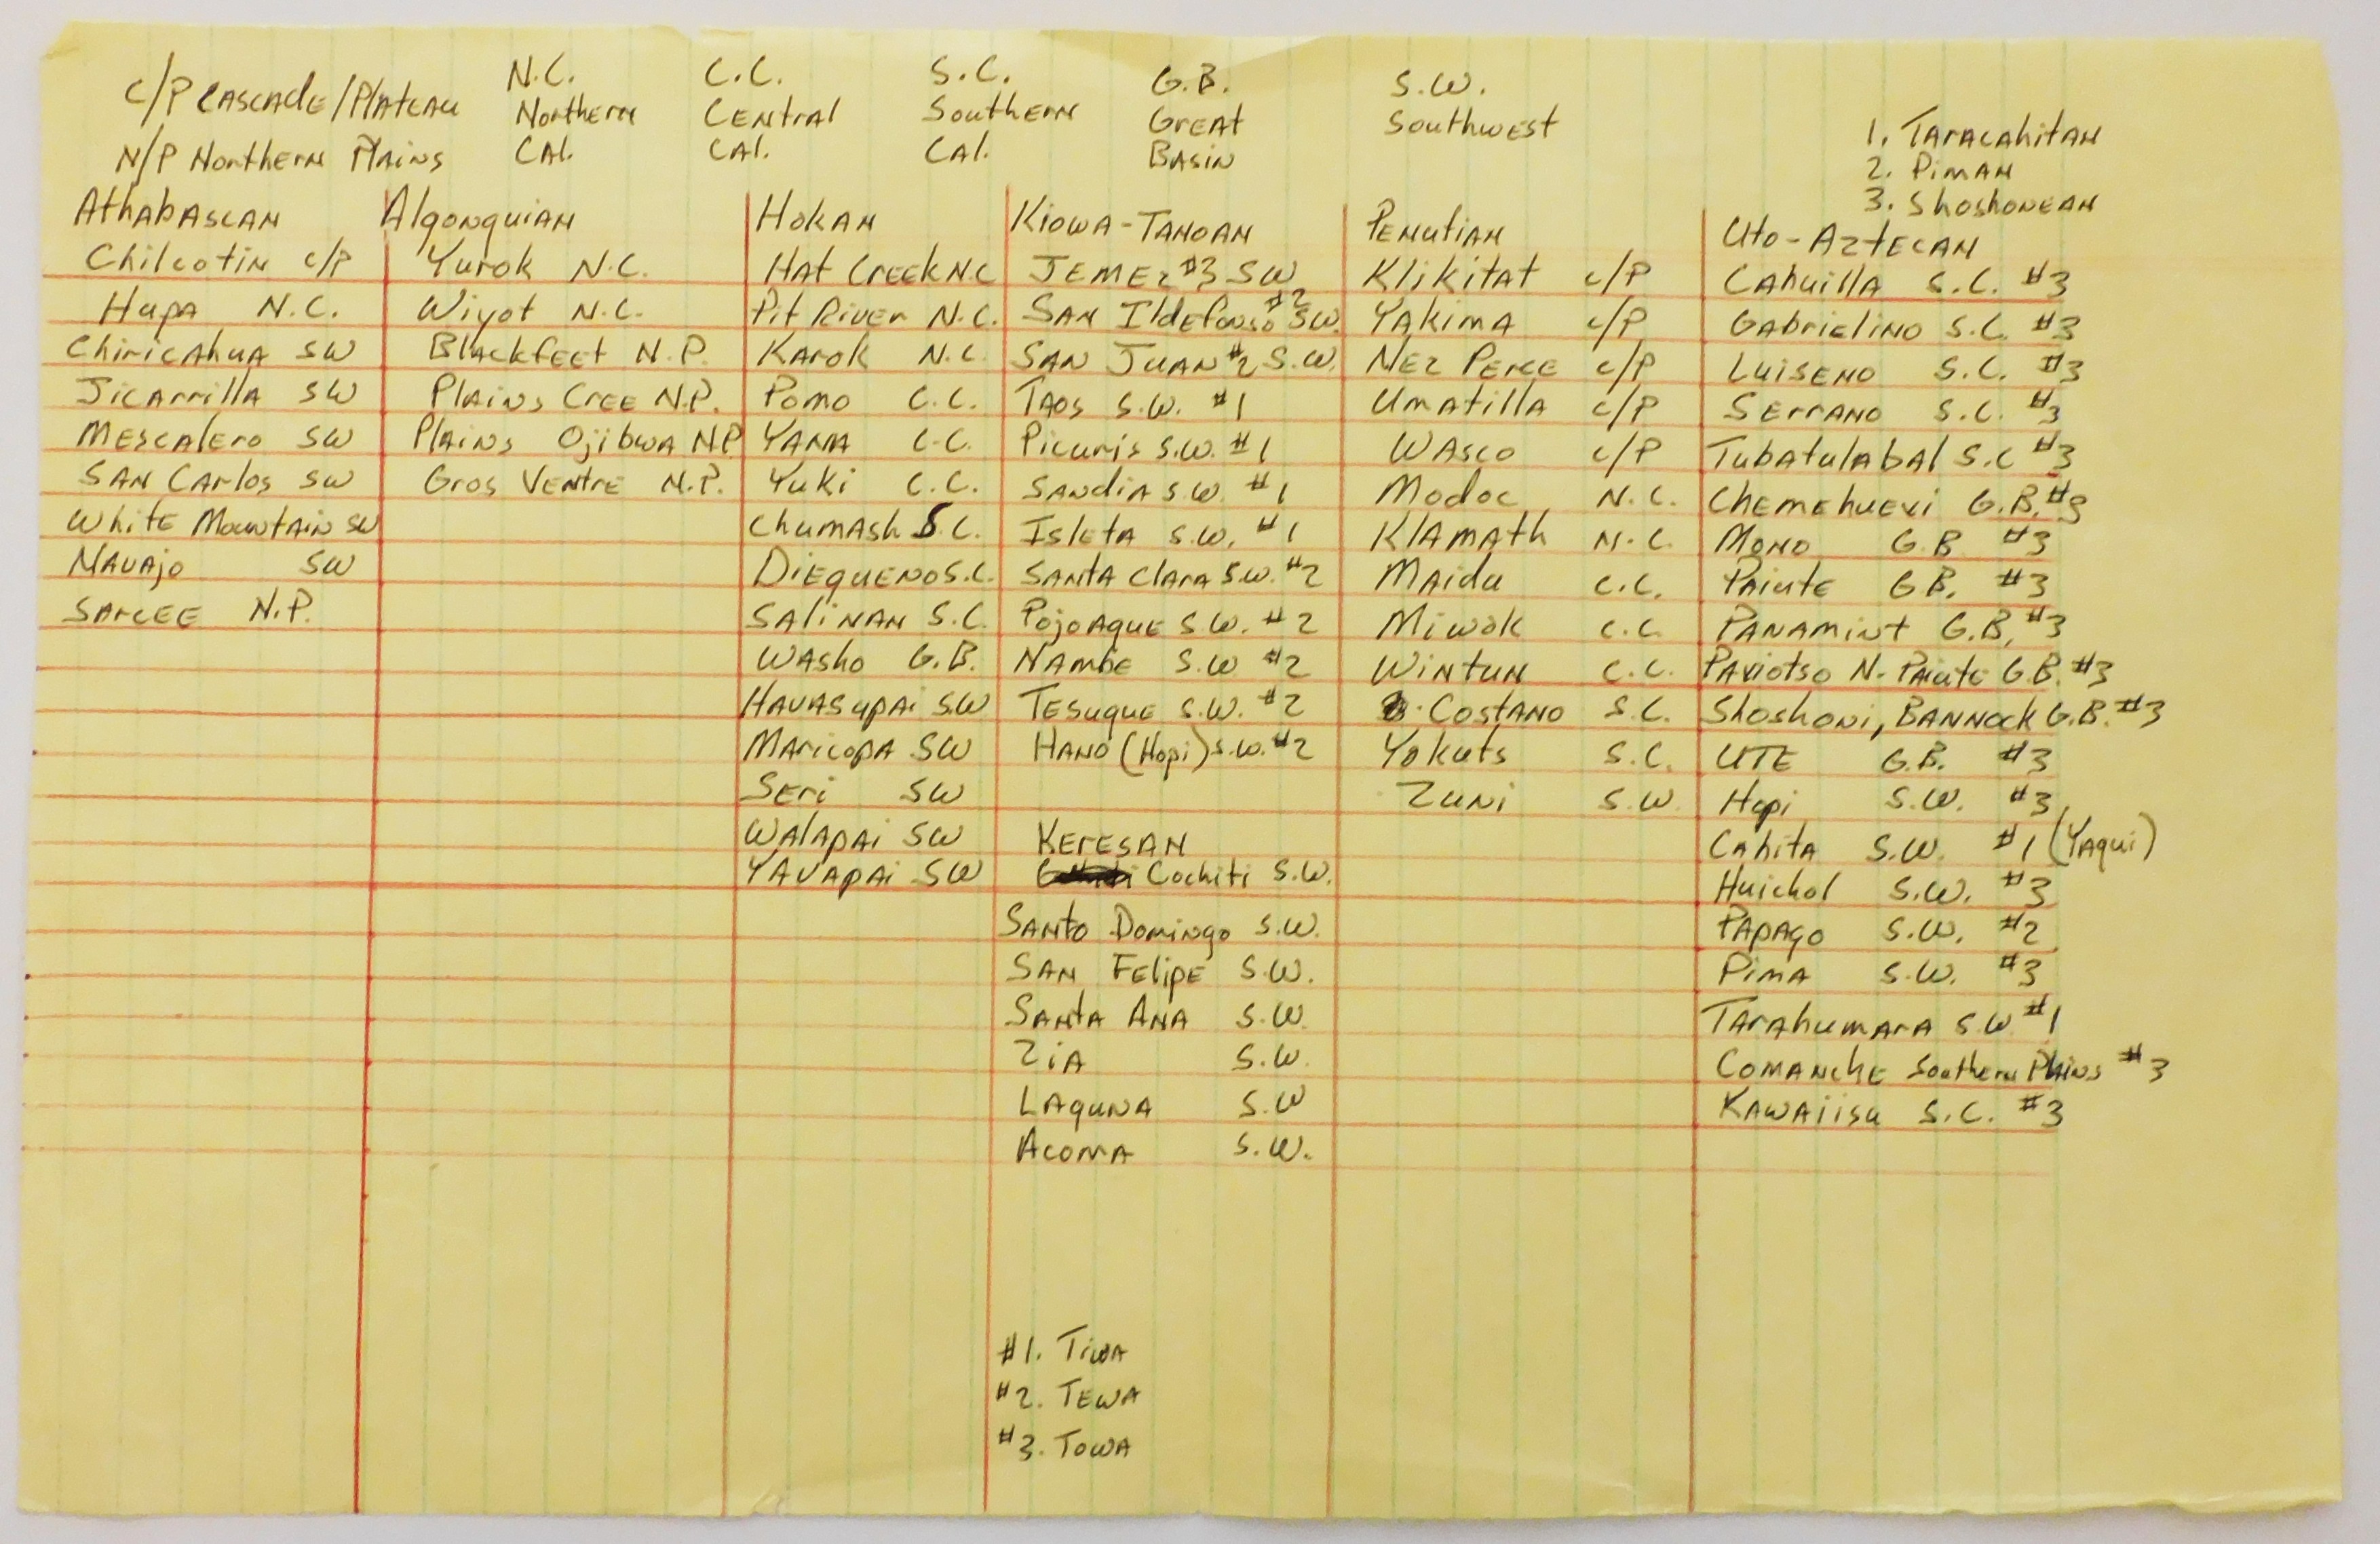 C/P Cascade/Plateau
N/P Northern Plains
N.C.
Northern
Cal.
C.C.
Central
Cal.
S.C.
Southern
Cal.
G.B.
Great
Basin
S.W.
Southwest
1. Taracahitan
2. Piman
3. Shoshonean
Athabascan
Chilcotin c/p
Hupa N.C.
Chiricahua SW
Jicarrilla SW
Mescalero SW
San Carlos SW
White Mountain SW
Navajo SW
Sarcee N.P.
Algonquian
Yurok N.C.
Wiyot N.C.
Blackfeet N.P.
Plains Cree N.P.
Plains Ojibwa N.P
Gros Ventre N.P.
Hokan
Hat Creek N.C
Pit River N.C.
Karok N.C.
Pomo C.C.
Yana C.C.
Yuki C.C.
Chumash S.C.
Diegueno S.C.
Salinan S.C.
Washo G.B.
Havasupai SW
Maricopa SW
Seri SW
Walapai SW
Yavapai SW
Kiowa-Tanoan
Jemez #3 SW
San Ildefonso #2 SW.
San Juan #2 S.W.
Taos S.W. #1
Picuris S.W. #1
Sandia S.W. #1
Isleta S.W. #1
Santa Clara S.W. #2
Pojoaque S.W. #2
Nambe S.W #2
Tesuque S.W. #2
Hano (Hopi) S.W. #2
Keresan
Cochiti S.W.
Santo Domingo S.W.
San Felipe S.W.
Santa Ana S.W.
Zia S.W.
Laguna S.W
Acoma S.W.
#1. Tiwa
#2. Tewa
#3. Towa
Penutian
Klikitat c/p
Yakima c/p
Nez Perce c/p
Umatilla c/p
Wasco c/p
Modoc N.C.
Klamath N.C.
Maidu C.C.
Miwok C.C.
Wintun C.C.
Costano S.C.
Yokuts S.C.
Zuni S.W.
Uto-Aztecan
Cahuilla S.C. #3
Gabrielino S.C. #3
Luiseno S.C. #3
Serrano S.C. #3
Tubatulabal S.C #3
Chemehuevi G.B. #3
Mono G.B #3
Paiute G.B. #3
Panamint G.B. #3
Paviotso N. Paiute G.B. #3
Shoshoni, Bannock G.B. #3
Ute G.B. #3
Hopi S.W. #3
Cahita S.W. #1 (Yaqui)
Huichol S.W. #3
Papago S.W. #2
Pima S.W. #3
Tarahumara S.W #1
Comanche Southern Plains #3
Kawaiisu S.C. #3